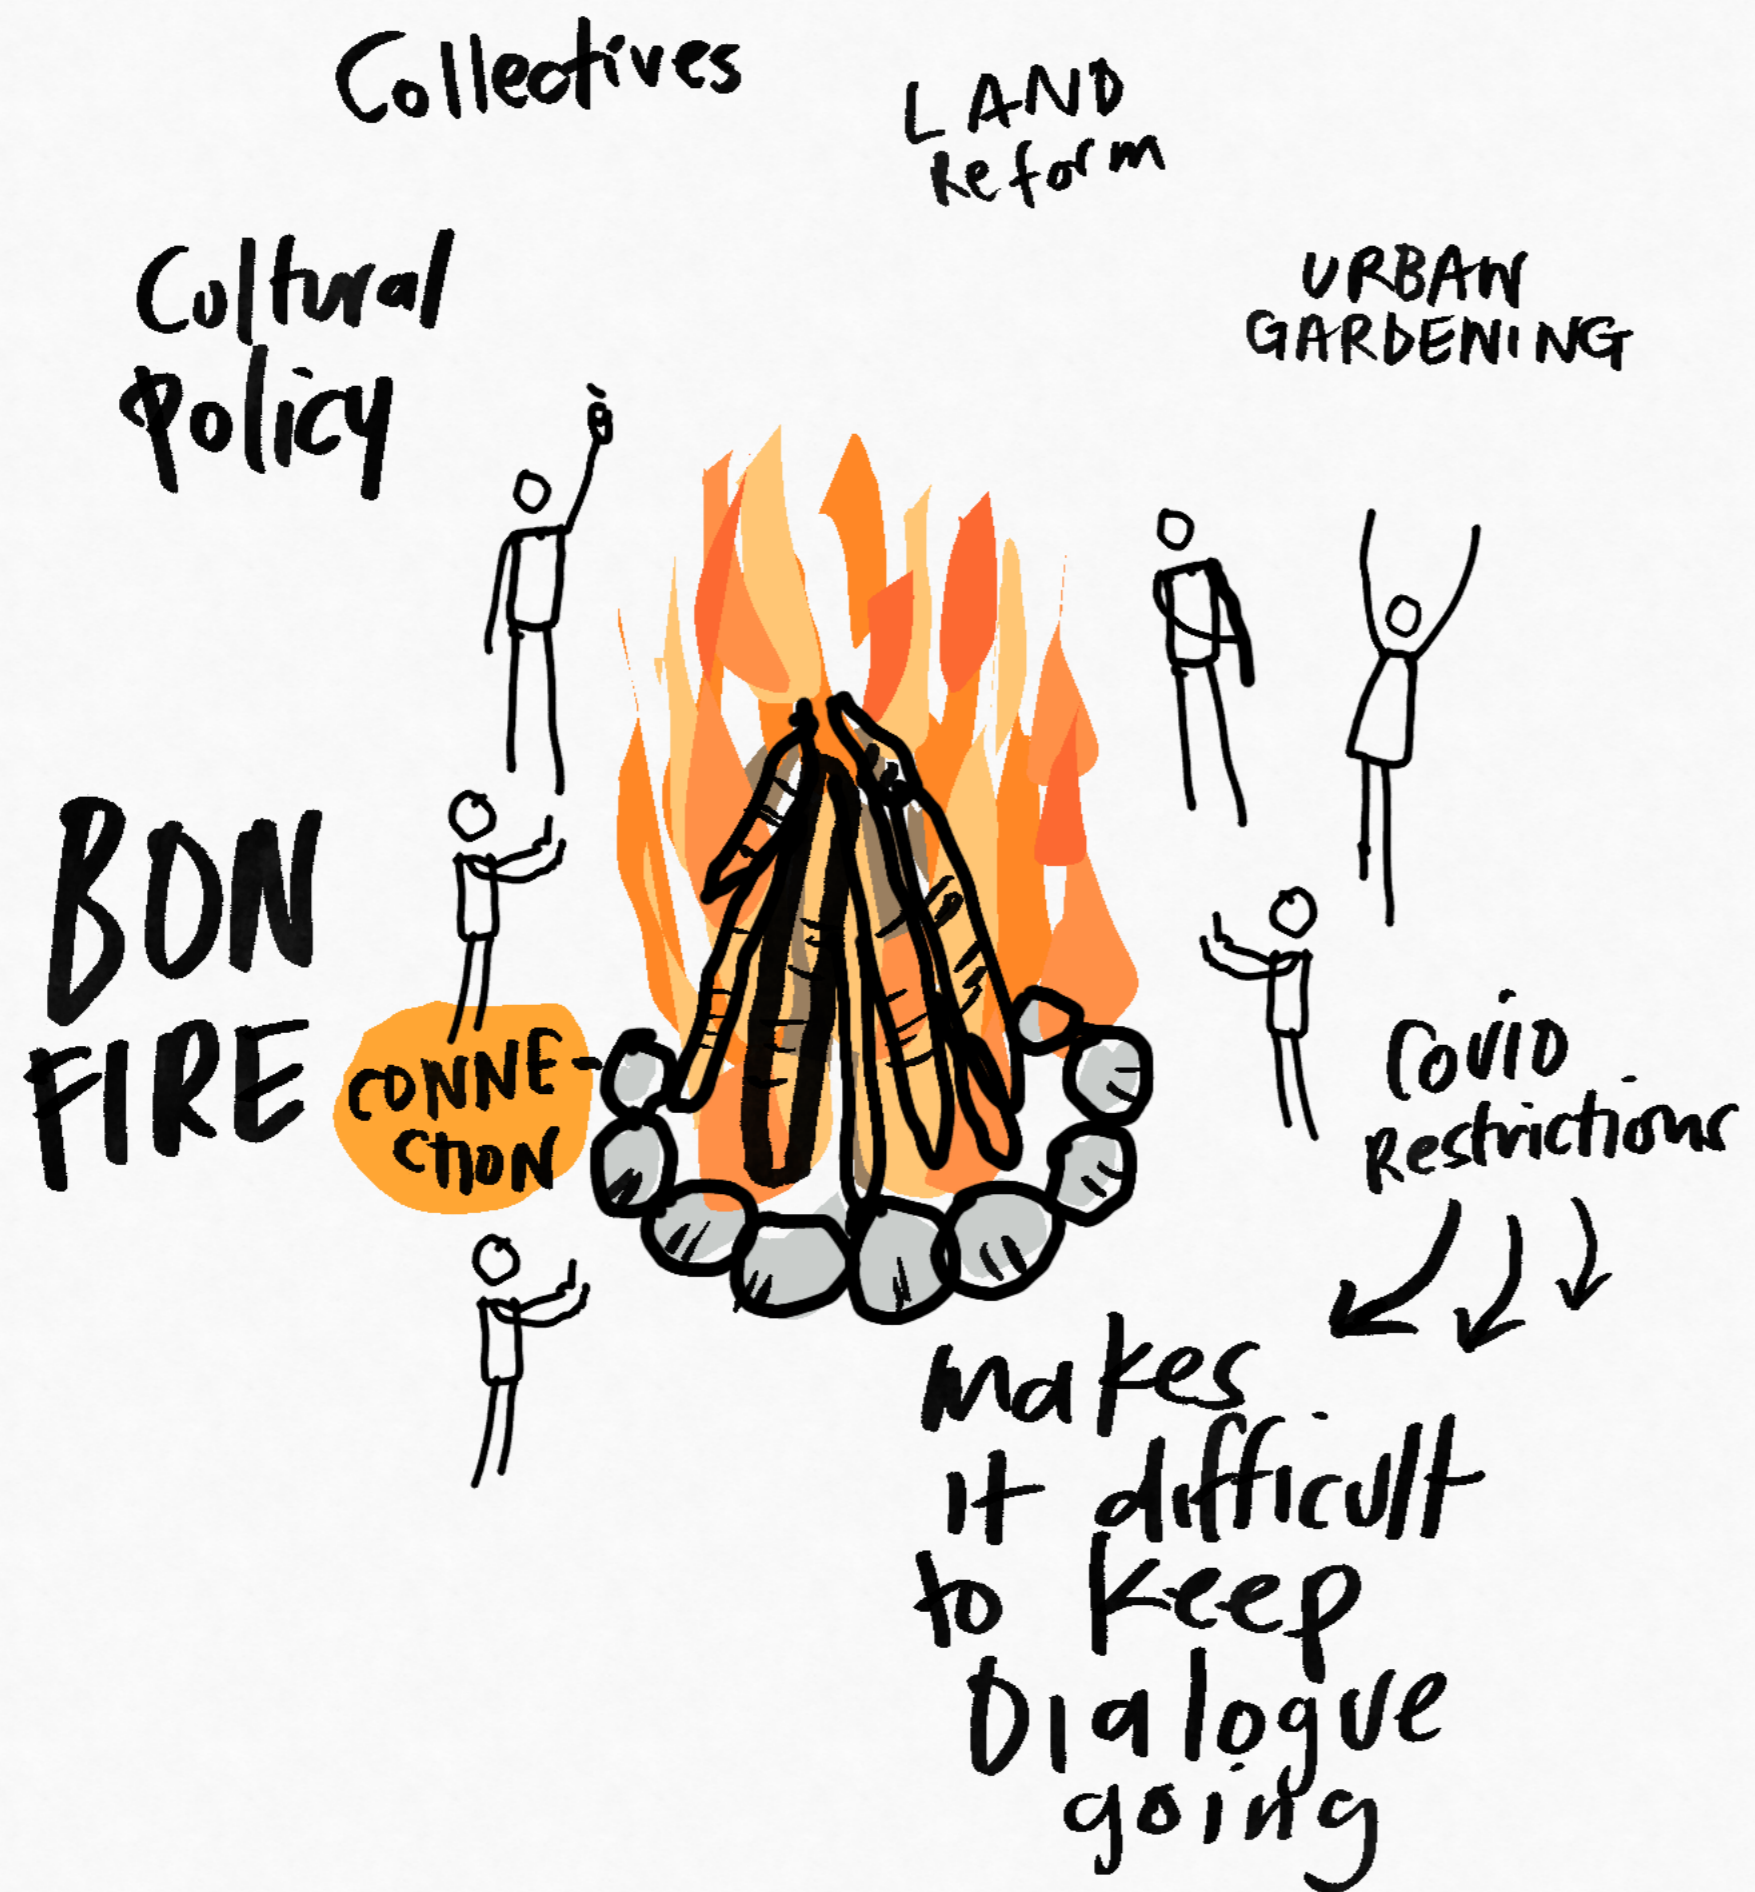 Collectives
LAND
Reform
Cultural
Policy
URBAN
GARDENING
BON
FIRE
CONNE-
CTION
Covid
Restrictions
makes
it difficult
to keep
Dialogue
going